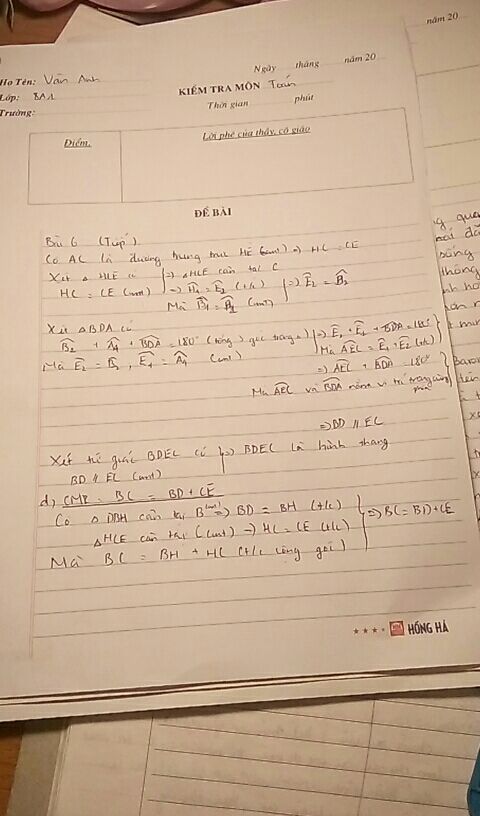 năm 20...
Ngày tháng năm 20...
Họ Tên: Vân Anh
Lớp: 8A1
KIỂM TRA MÔN Toán
Trường:
Thời gian phút
Điểm.
Lời phê của thầy, cô giáo
ĐỀ BÀI
Bài 6 (Tiếp)
Có AC là đường trung trực HE (cmt) => HC = CE
Xét △ HCE có } => △HCE cân tại C
HC = CE (cmt) => Ĥ1 = Ê2 (t/c) } => Ê2 = B̂2
Mà
Xét △BDA có
B̂2 + Â4 + BDA = 180° (tổng 3 góc trong △) => Ê1 + Ê2 + BDA = 180°
Mà Ê2 = B̂2, Ê1 = Â4 (cmt) Mà AEC = Ê1 + Ê2 (t/c)
=> AEC + BDA = 180°
Mà AEC và BDA nằm vị trí trong cùng phía
=> BD // EC
Xét tứ giác BDEC có } => BDEC là hình thang
BD // EC (cmt)
d, CMR: BC = BD + CE
Có △ DBH cân tại B (cmt) => BD = BH (t/c)
△HCE cân tại C (cmt) => HC = CE (t/c) } => BC = BD + CE
Mà BC = BH + HC (t/c cộng góc)
HỒNG HÀ